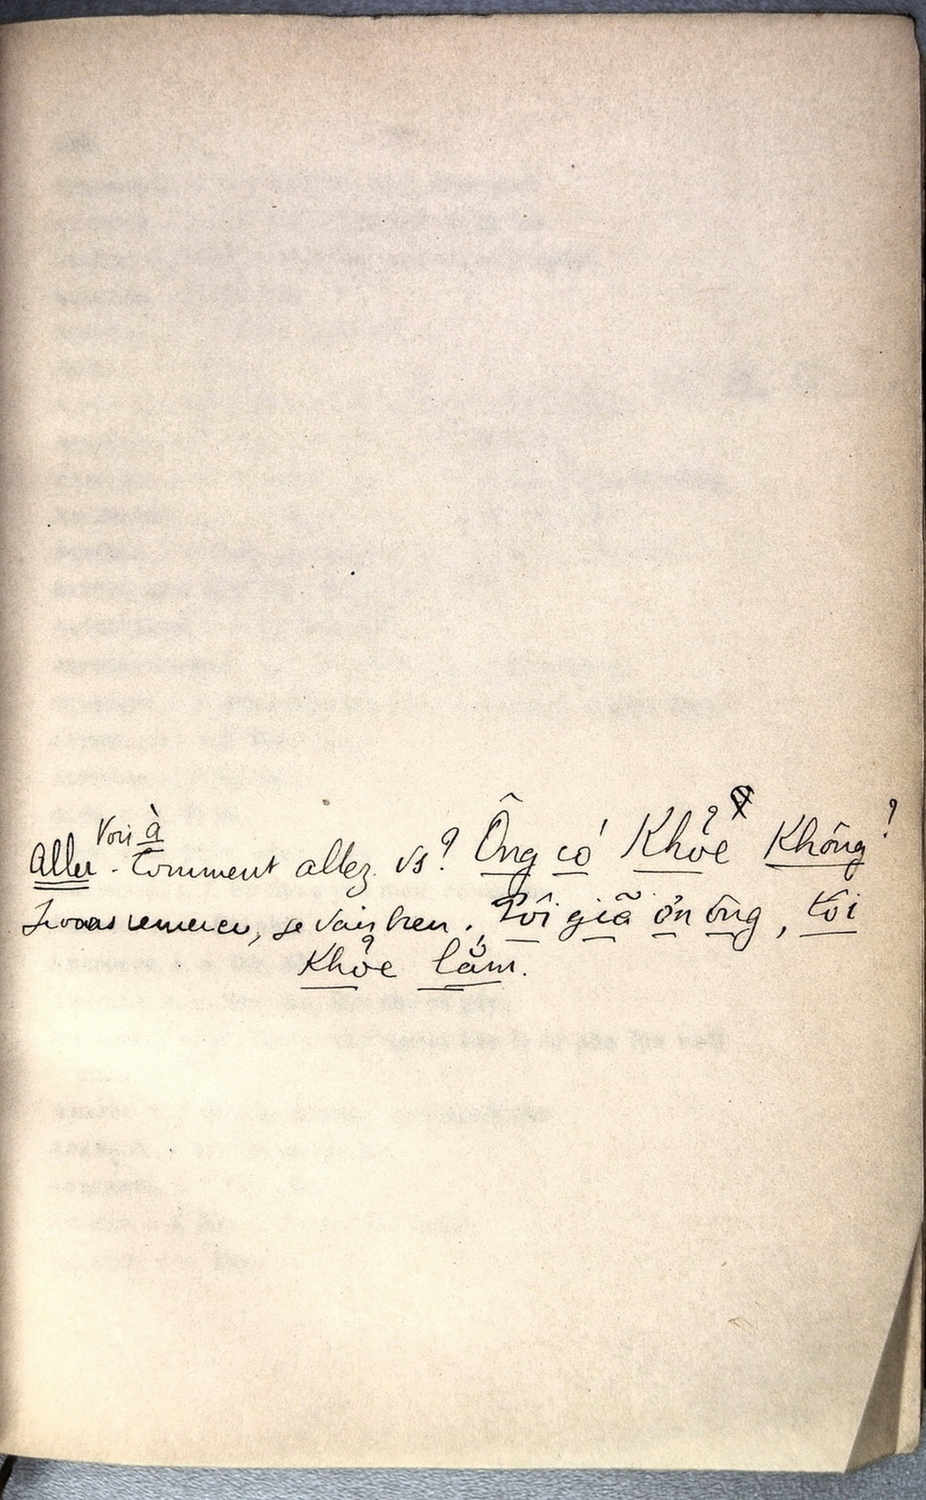 Voir à
Aller - Comment allez vs? Ông có Khỏe Không?
Je vous remercie, je vais bien. Tôi giã ơn ông, tôi
Khỏe lắm.